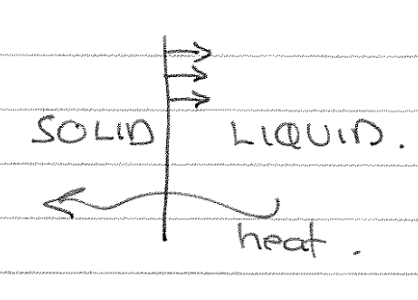 SOLID LIQUID.
heat.